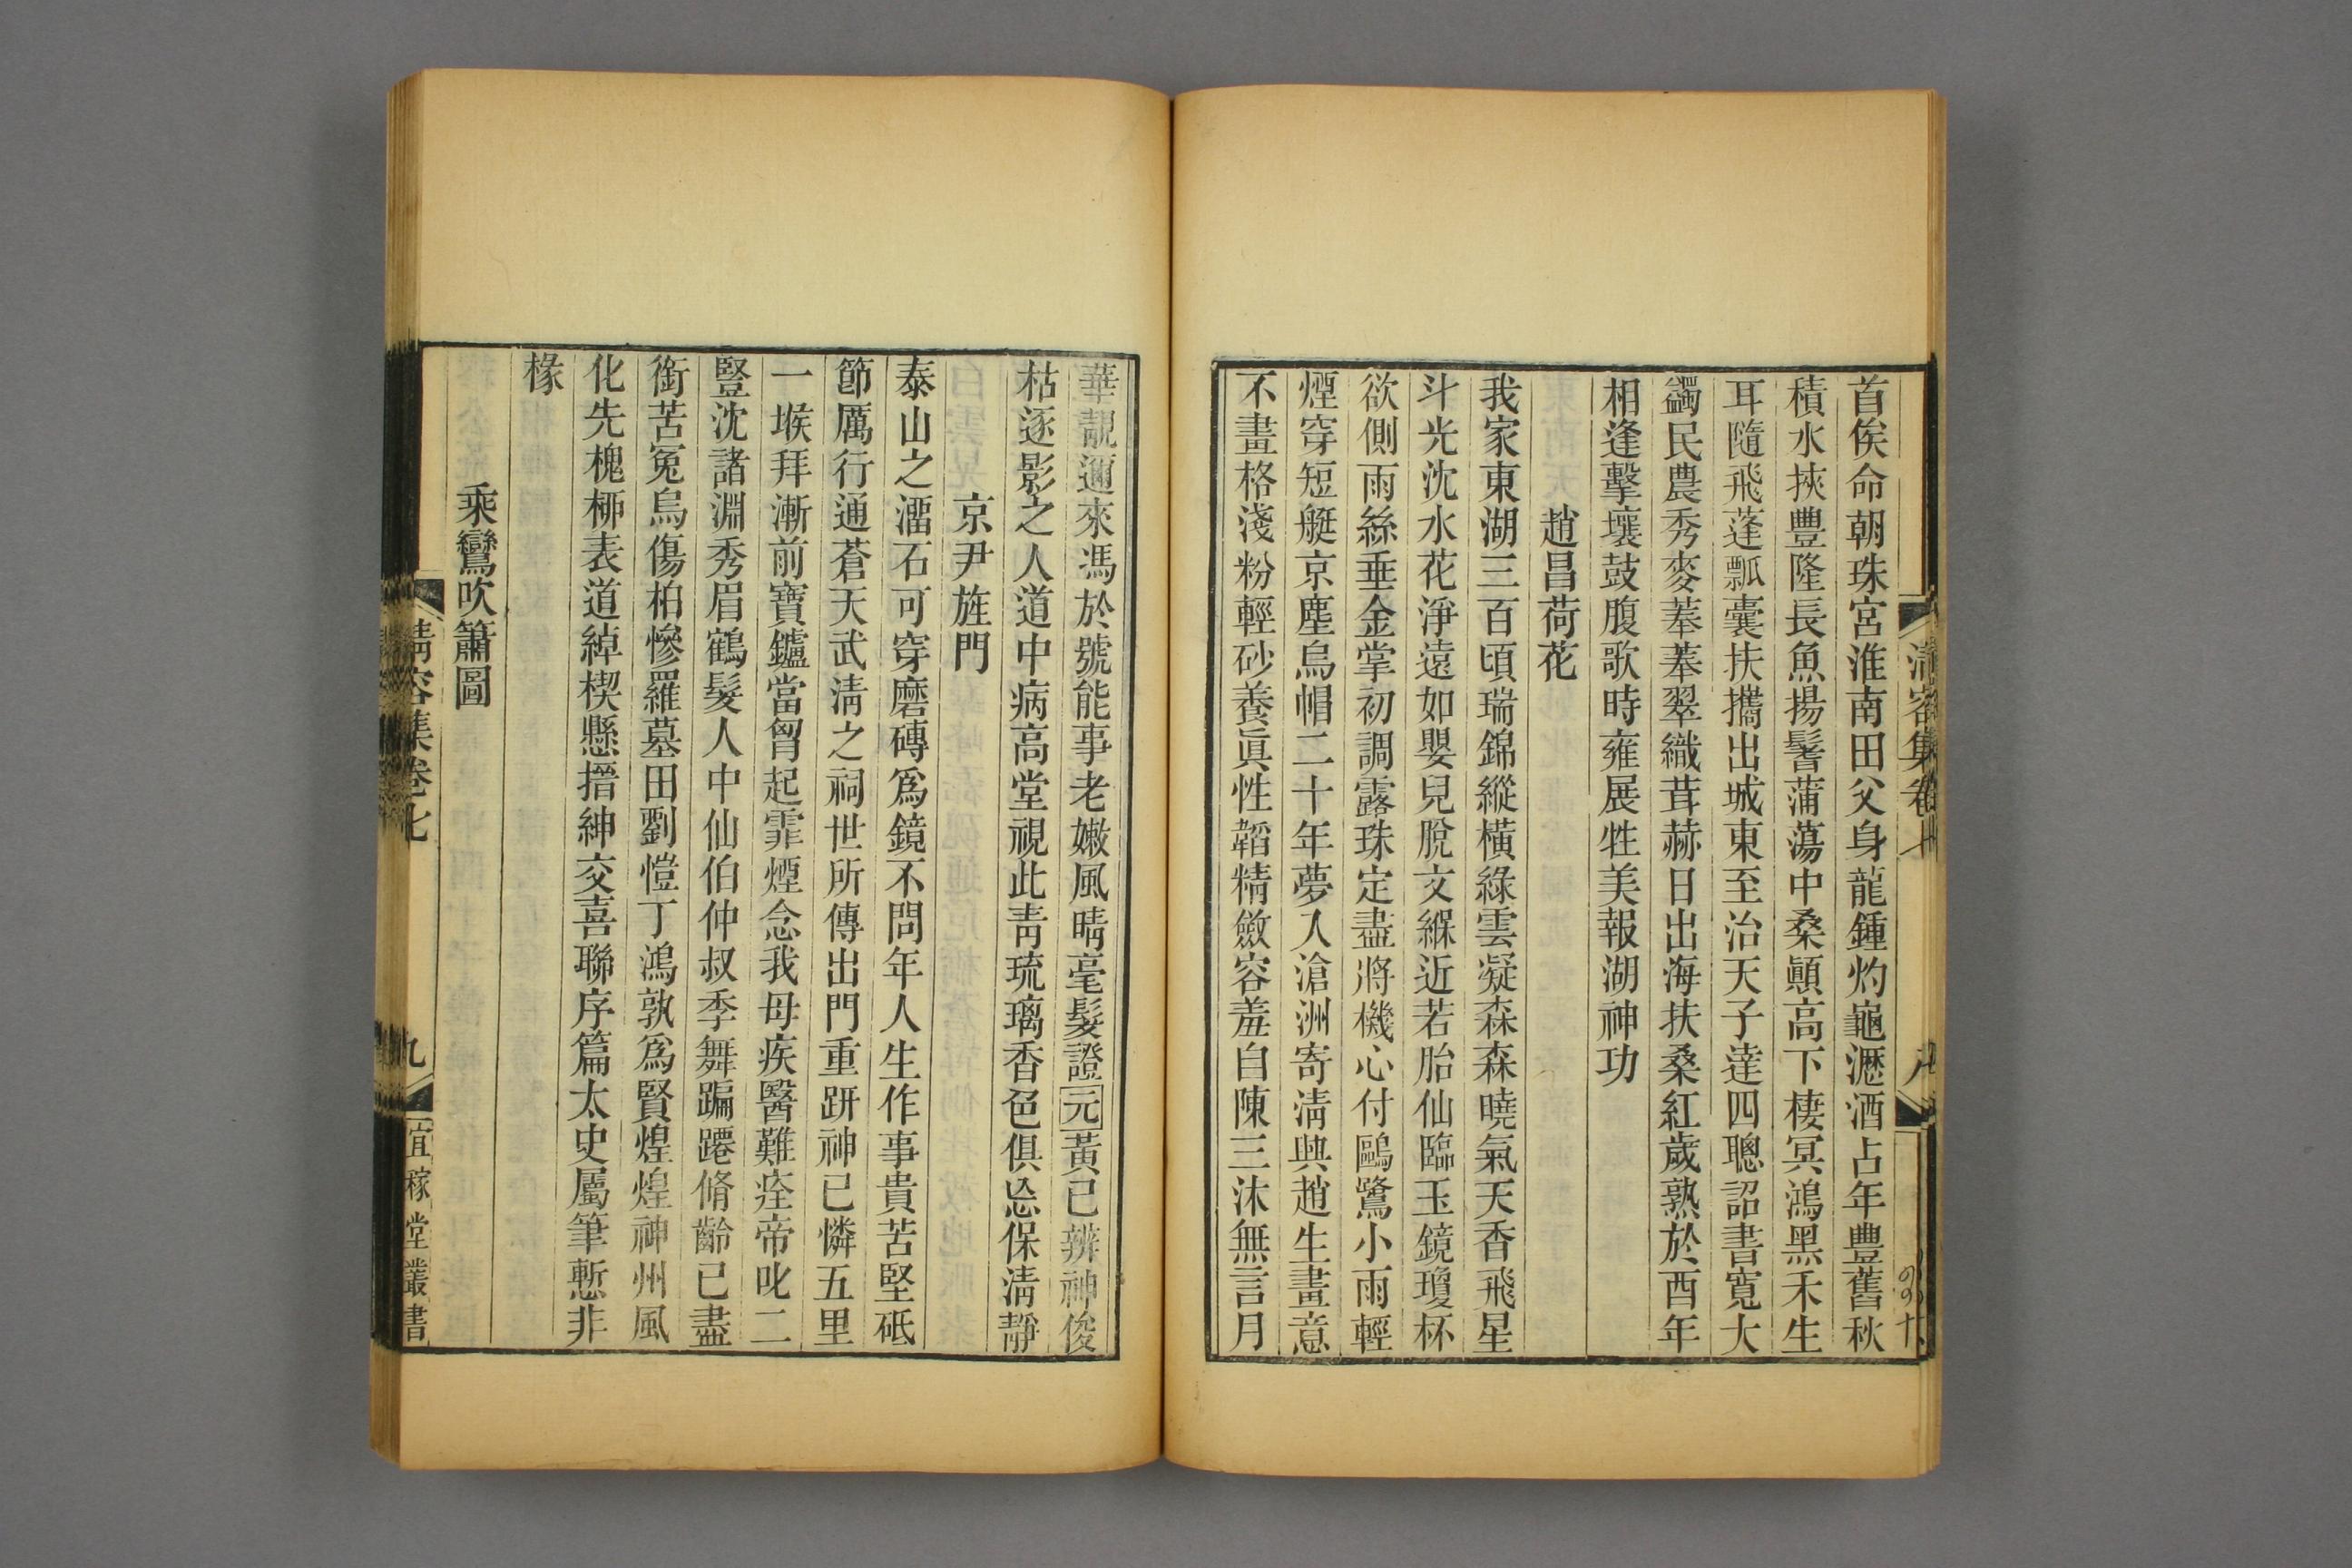 清容集卷七
八
首俟命朝珠宮淮南田父身龍鍾灼龜瀝酒占年豐舊秋
積水挾豐隆長魚揚鬐蒲蕩中桑顚高下棲冥鴻黑禾生
耳隨飛蓬瓢囊扶攜出城東至治天子達四聰詔書寬大
蠲民農秀麥蓁蓁翠織茸赫日出海扶桑紅歲熟於酉年
相逢擊壤鼓腹歌時雍展牲美報湖神功
趙昌荷花
我家東湖三百頃瑞錦縱橫綠雲凝森森曉氣天香飛星
斗光沈水花淨遠如嬰兒脫文緥近若胎仙臨玉鏡瓊杯
欲側雨絲垂金掌初調露珠定盡將機心付鷗鷺小雨輕
煙穿短艇京塵烏帽二十年夢入滄洲寄淸興趙生畫意
不畫格淺粉輕砂養眞性韜精斂容羞自陳三沐無言月
華靚邇來馮於號能事老嫩風晴毫髮證元黃已辨神俊
枯逐影之人道中病高堂視此靑琉璃香色俱忘保淸靜
京尹旌門
泰山之溜石可穿磨磚爲鏡不問年人生作事貴苦堅砥
節厲行通蒼天武淸之祠世所傳出門重趼神已憐五里
一堠拜漸前寶鑪當胷起霏煙念我母疾醫難痊帝叱二
豎沈諸淵秀眉鶴髮人中仙伯仲叔季舞蹁躚脩齡已盡
銜苦冤烏傷柏慘羅墓田劉愷丁鴻孰爲賢煌煌神州風
化先槐桺表道綽楔懸搢紳交喜聯序篇太史屬筆慙非
椽
乘鸞吹簫圖
清容集卷七
九
宜稼堂叢書